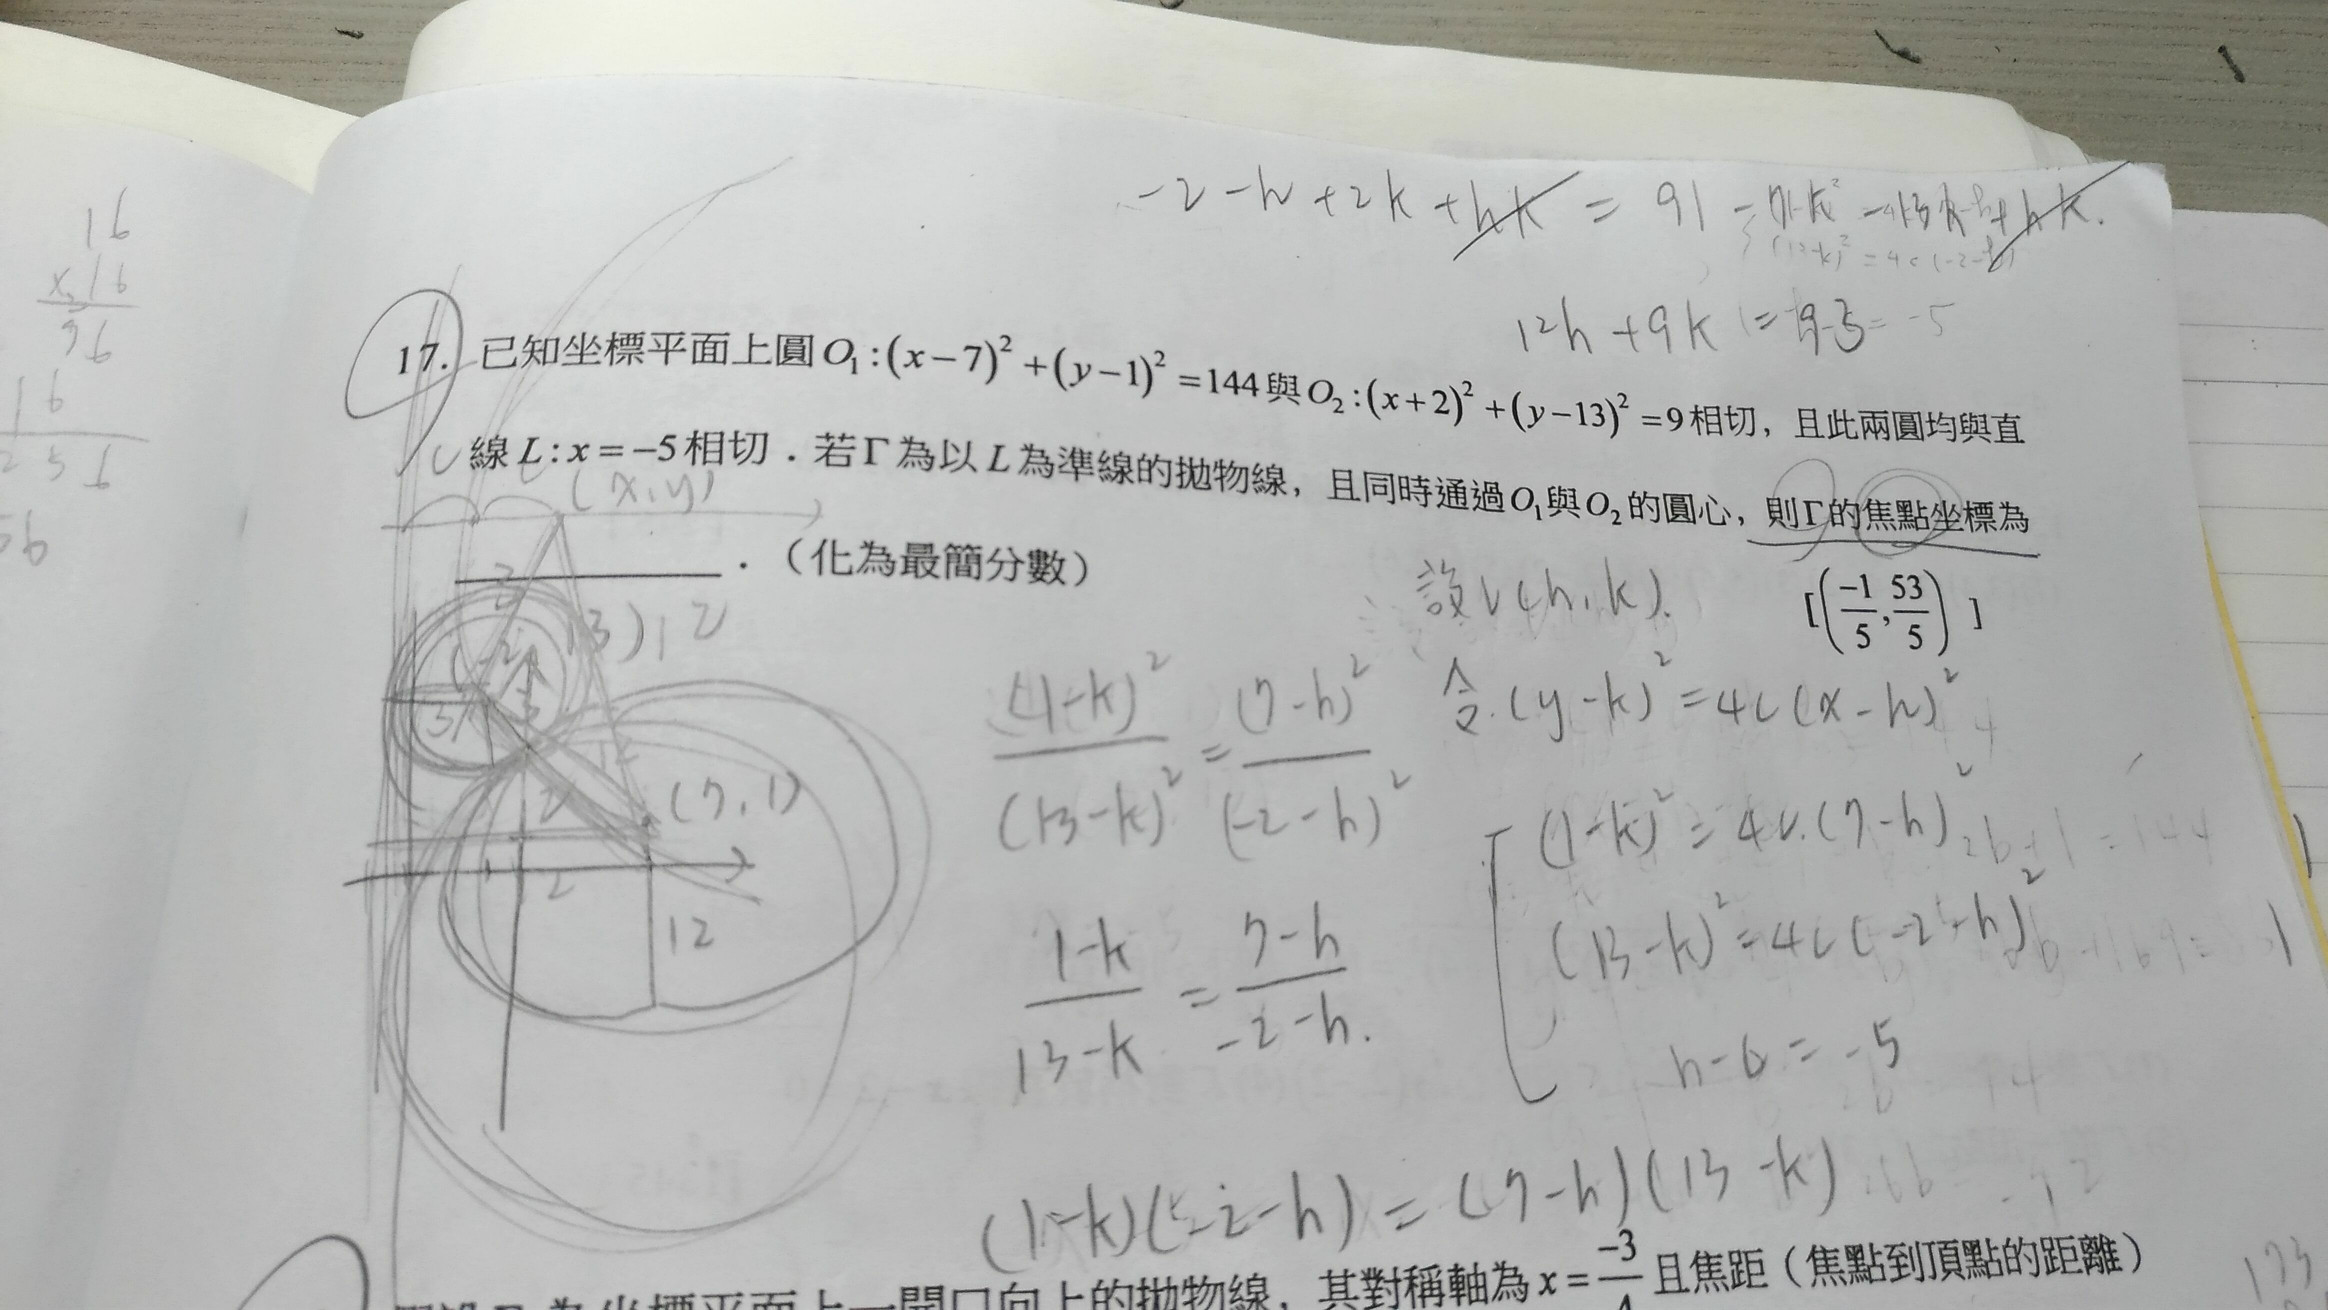 16
×16
96
16
256
56
-2-h+2k+hk = 91
12h+9k = 93 = -5
17. 已知坐標平面上圓O₁:(x−7)²+(y−1)²=144與O₂:(x+2)²+(y−13)²=9相切，且此兩圓均與直
線L:x=−5相切．若Γ為以L為準線的拋物線，且同時通過O₁與O₂的圓心，則Γ的焦點坐標為
．（化為最簡分數）
[(-1/5, 53/5)]
(x,y)
(7,1)
12
設V(h,k).
令(y-k)²=4c(x-h)²
(1-k)²/(13-k)² = (7-h)²/(-2-h)²
(1-k)²=4c.(7-h)²
(13-k)²=4c(-2-h)²
(1-k)/(13-k) = (7-h)/(-2-h).
h-c=-5
(1-k)(-2-h)=(7-h)(13-k)
為坐標平面上一開口向上的拋物線，其對稱軸為x=-3/4且焦距（焦點到頂點的距離）